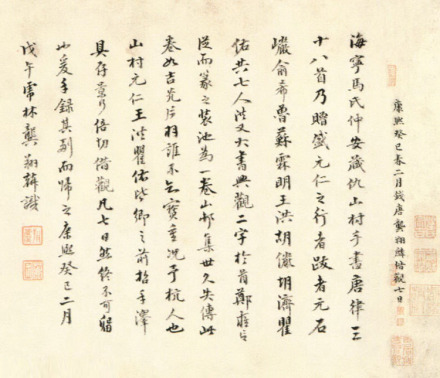 康熙癸巳春二月錢唐龔翔麟借觀七日
海寧馬氏仲安藏仇山村手書唐律三
十八首乃贈盛元仁之行者跋者元石
巖俞希魯蘇霖明王洪胡儼胡濟瞿
佑共七人洪又大書興觀二字於首鄭雍言
從而篆之裝池為一卷山村集世久失傳此
卷如吉光片羽誰不知寶重況予杭人也
山村元仁王洪瞿佑皆鄉之前哲手澤
具存意乃倍切借觀凡七日然終不可留
也爰手錄其副而歸之康熙癸巳二月
戊午 林龔翔麟識